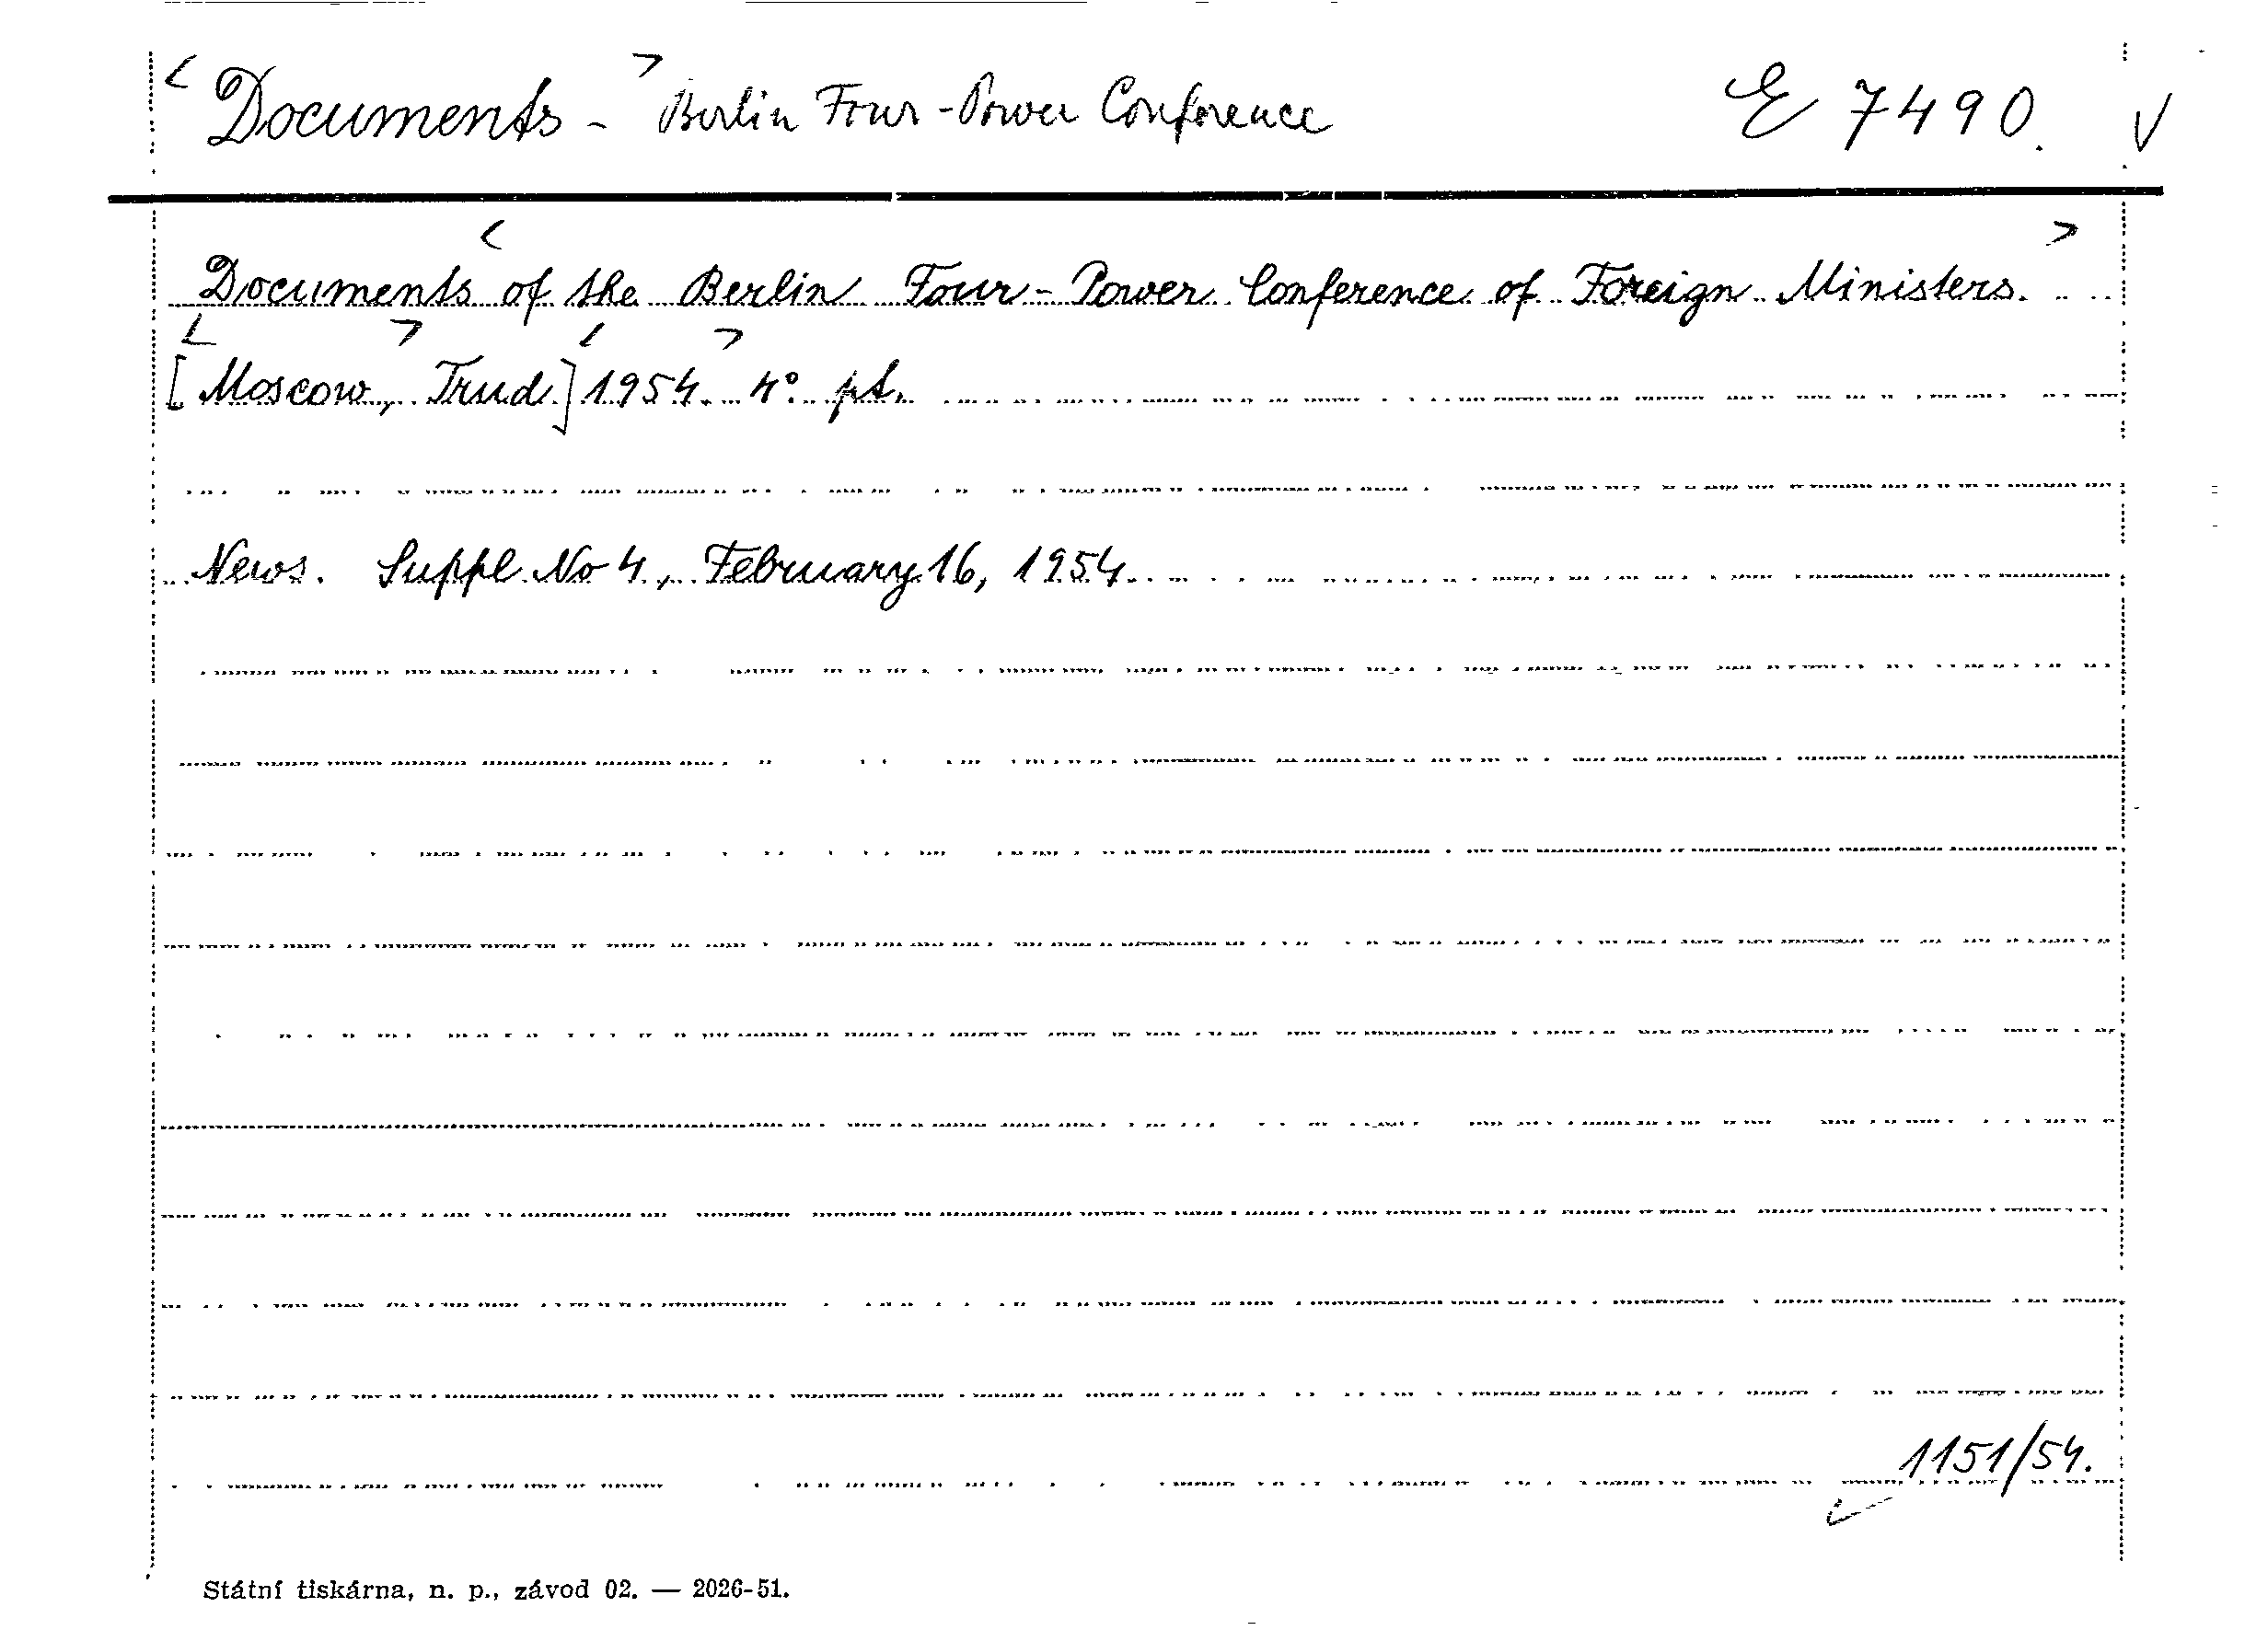 < Documents - > Berlin Four-Power Conference E 7490. √
Documents < of the Berlin Four-Power Conference of Foreign Ministers. >
[< Moscow, > Trud] < 1954. > 4° pt.
News. Suppl. No 4, February 16, 1954.
1151/54.
Státní tiskárna, n. p., závod 02. — 2026-51.